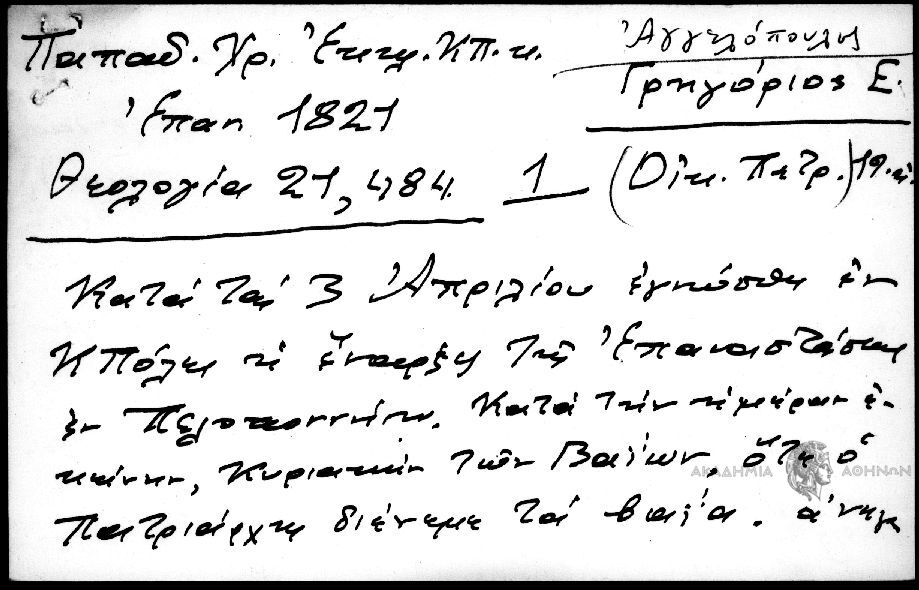 Παπαδ. Χρ. Ἐκκλ. ΚΠ. κ.
Ἀγγελόπουλος
Γρηγόριος Ε.
Ἐπαν 1821
Θεολογία 21, 484. 1 (Οἰκ. Πατρ.) 19. αἰ.
Κατά τάς 3 Ἀπριλίου ἐγνώσθη ἐν
ΚΠόλει ἡ ἔναρξις τῆς Ἐπαναστάσεως
ἐν Πελοποννήσῳ. Κατά τήν ἡμέραν ἐ-
κείνην, Κυριακήν τῶν Βαΐων, ὅτε ὁ
Πατριάρχης διένεμε τά βαΐα. ἀνηγ
ΑΚΑΔΗΜΙΑ ΑΘΗΝΩΝ